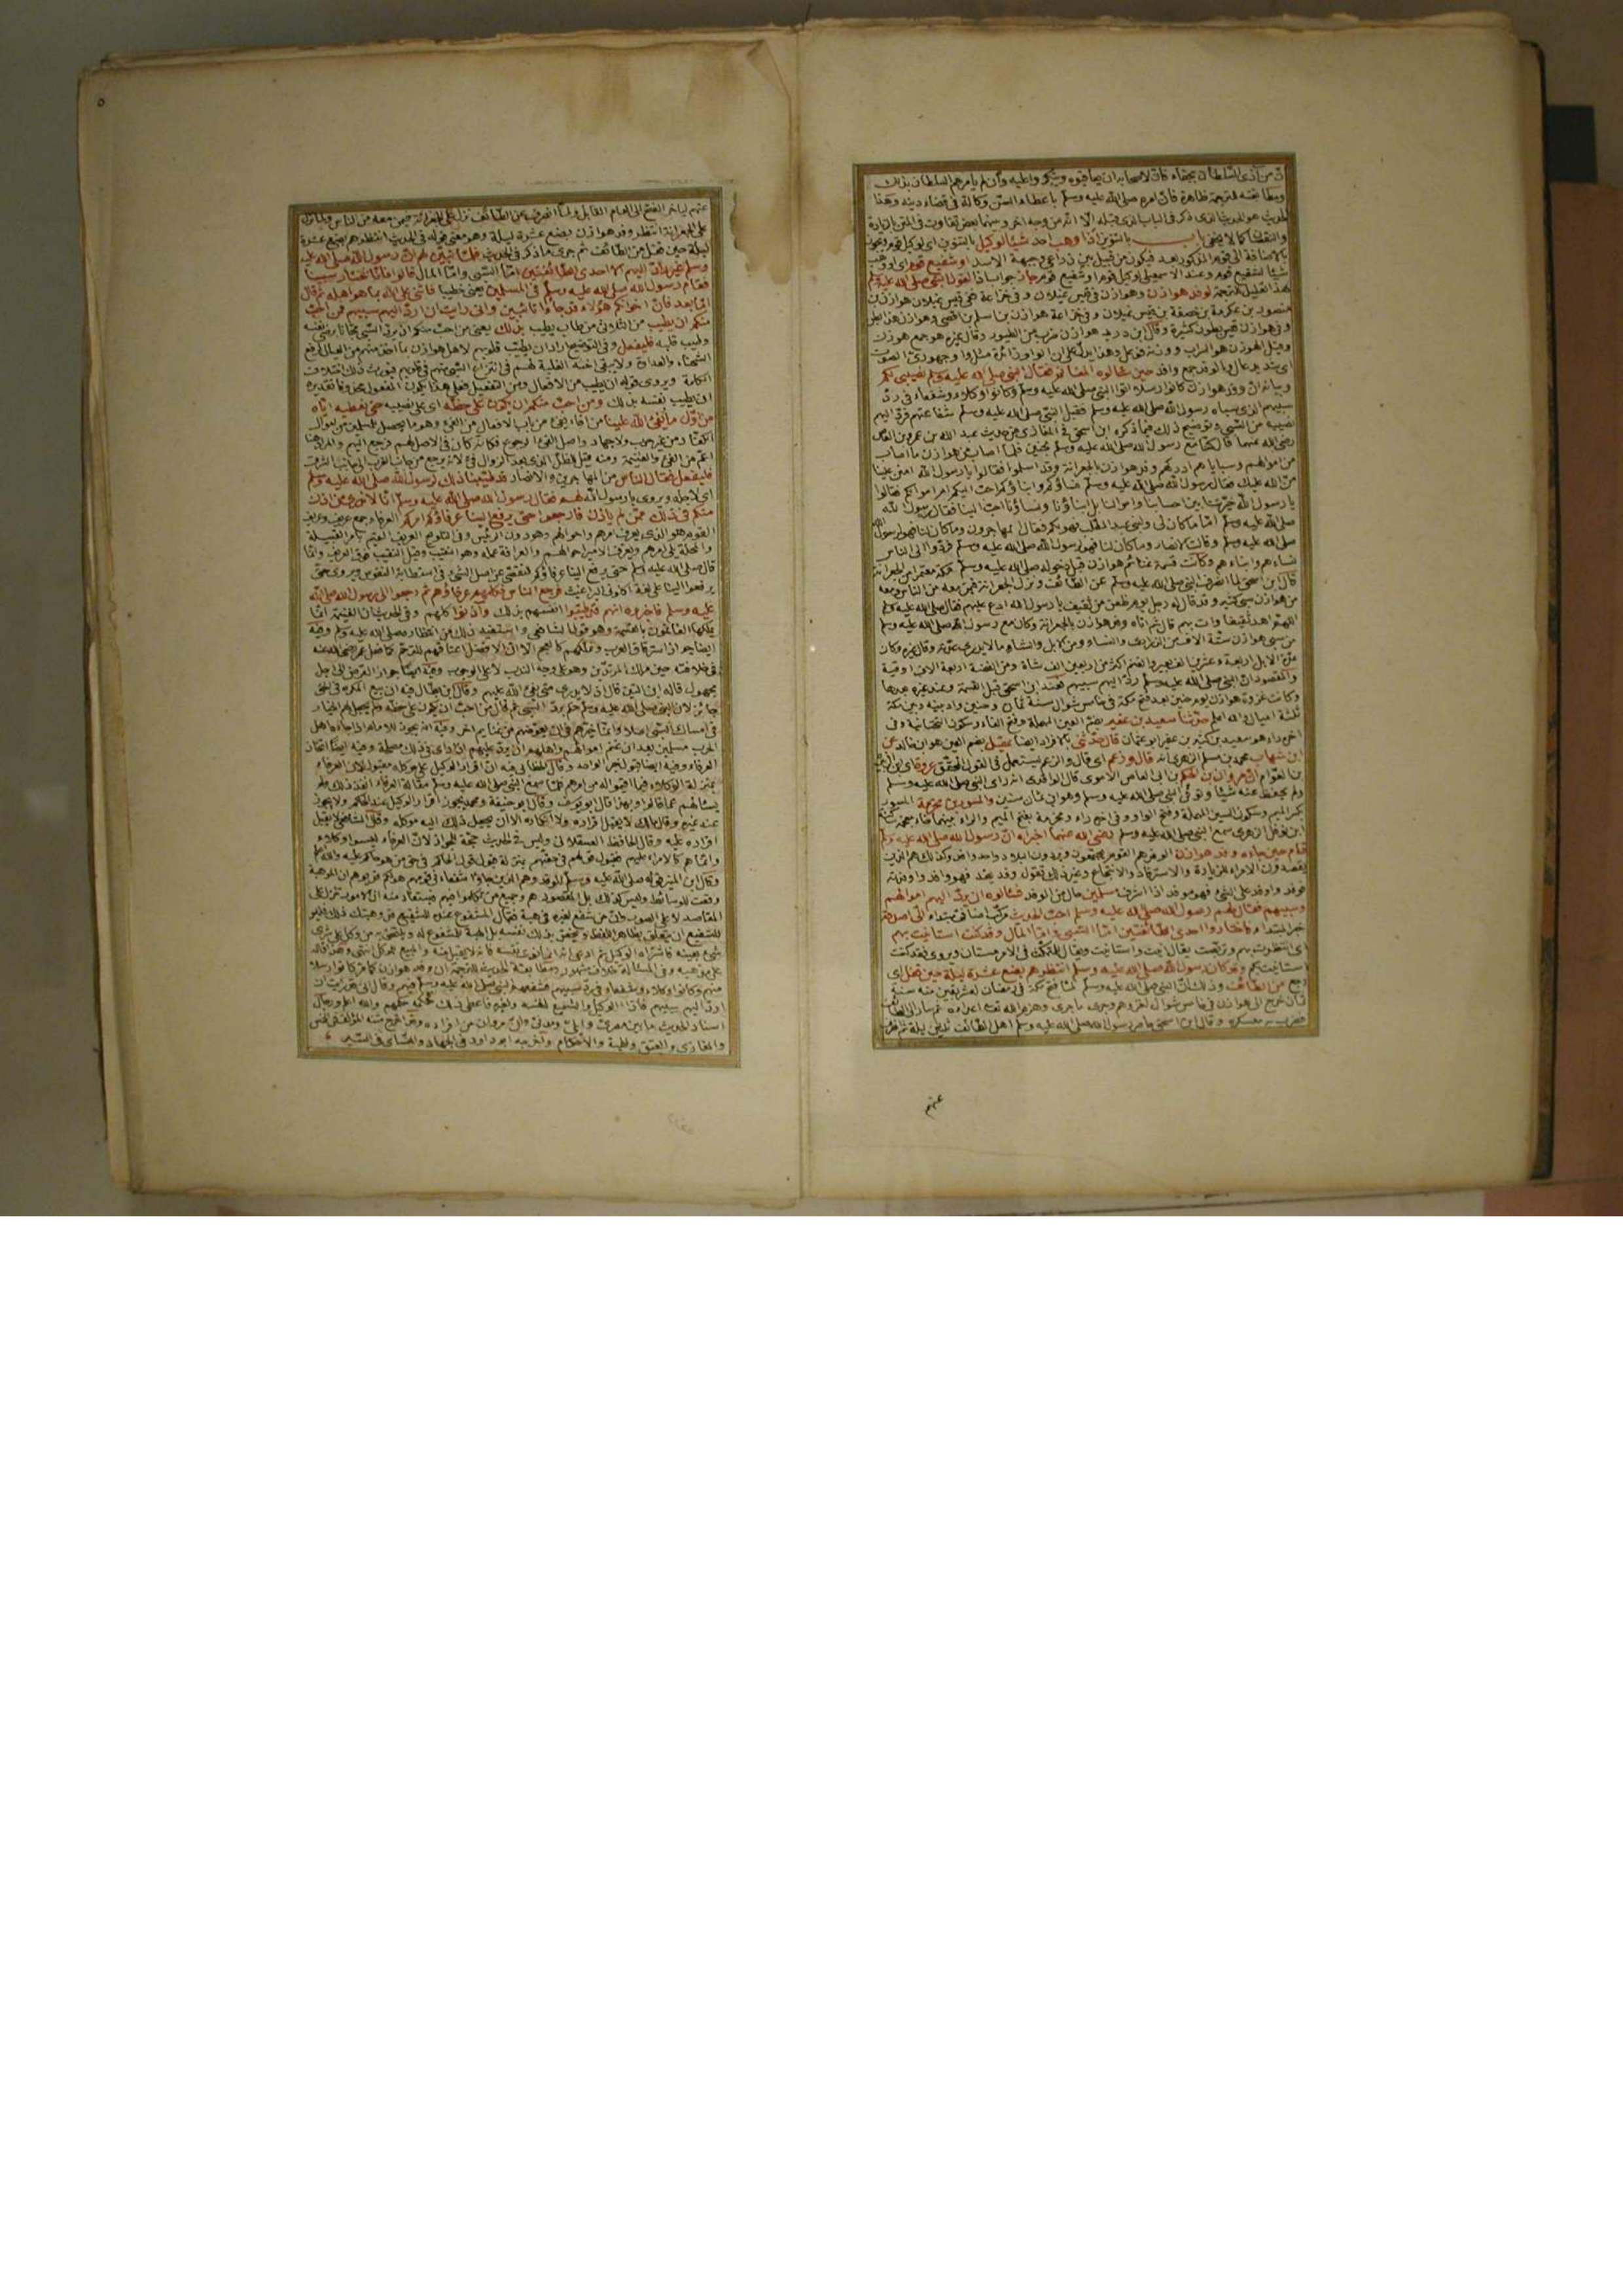 ان من آذى السلطان بجفاء فان لاصحابه ان يعاتبوه وينكروا عليه وان لم يامرهم السلطان بذلك
ومطابقته للترجمة ظاهرة فان امره صلى الله عليه وسلم باعطاء السن وكالة في قضاء دينه وهذا
الحديث هو الحديث الذي ذكر في الباب الذي قبله الا انه من وجه آخر وبينهما بعض تفاوت في المتن بالزيادة
والنقصان كما لا يخفى باب بالتنوين اذا وهب احد شيئا لوكيل بالتنوين اى لوكيل قوم
بالاضافة الى قوم المذكور بعد فيكون من قبيل بين ذراعي وجبهة الاسد او شفيع قوم اى او وهب
شيئا لشفيع قوم جاز جواب اذا لقول النبي صلى الله عليه وسلم
لوفد هوازن وهوازن في قيس عيلان وفي خزاعة ففي قيس عيلان هوازن بن
منصور بن عكرمة بن خصفة بن قيس عيلان وفي خزاعة هوازن بن اسلم بن افصى وهوازن هذا بطن
وفي هوازن قيس بطون كثيرة وقال ابن دريد هوازن ضرب من الطيور وقال غيره هو جمع هوزن
حين سالوه المغانم فقال النبي صلى الله عليه وسلم نصيبي لكم
وبيانه ان وفد هوازن كانوا رسلا اتوا النبي صلى الله عليه وسلم وكانوا وكلاء وشفعاء في رد
سبيهم الذي سباه رسول الله صلى الله عليه وسلم فقبل النبي صلى الله عليه وسلم شفاعتهم فرد اليهم
نصيبه من السبي وتوضيح ذلك فيما ذكره ابن اسحق في المغازي من حديث عبد الله بن عمرو بن العاص
رضي الله عنهما قال كنا مع رسول الله صلى الله عليه وسلم بحنين فلما اصاب من هوازن ما اصاب
من اموالهم وسباياهم ادركهم وفد هوازن بالجعرانة وقد اسلموا فقالوا يا رسول الله امنن علينا
من الله عليك فقال رسول الله صلى الله عليه وسلم نساؤكم وابناؤكم احب اليكم ام اموالكم فقالوا
يا رسول الله خيرتنا بين احسابنا واموالنا بل ابناؤنا ونساؤنا احب الينا فقال رسول الله
صلى الله عليه وسلم اما ما كان لي ولبني عبد المطلب فهو لكم فقال المهاجرون وما كان لنا فهو لرسول الله
صلى الله عليه وسلم وقالت الانصار وما كان لنا فهو لرسول الله صلى الله عليه وسلم فردوا الى الناس
نساءهم وابناءهم وكانت قسمة غنائم هوازن قبل دخوله صلى الله عليه وسلم مكة معتمرا من الجعرانة
قال ابن اسحق لما انصرف النبي صلى الله عليه وسلم عن الطائف ونزل الجعرانة فيمن معه من الناس ومعه
من هوازن سبي كثير وقد قال له رجل يوم ظعن من ثقيف يا رسول الله ادع عليهم فقال صلى الله عليه وسلم
اللهم اهد ثقيفا وات بهم قال ثم اتاه وفد هوازن بالجعرانة وكان مع رسول الله صلى الله عليه وسلم
من سبي هوازن ستة الاف من الذراري والنساء ومن الابل والشاء ما لا يدرى عدته وقال غيره وكان
عدة الابل اربعة وعشرين الف بعير والغنم اكثر من اربعين الف شاة ومن الفضة اربعة الاف اوقية
والمقصود ان النبي صلى الله عليه وسلم رد اليهم سبيهم فعند ابن اسحق قبل القسمة وعند غيره بعدها
وكانت غزوة هوازن يوم حنين بعد فتح مكة في خامس شوال سنة ثمان وحنين واد بينه وبين مكة
ثلثة اميال والله اعلم حدثنا سعيد بن عفير بضم العين المهملة وفتح الفاء وسكون التحتانية وفي
آخره راء هو سعيد بن كثير بن عفير ابو عثمان قال حدثني بالافراد ايضا عقيل بضم العين هو ابن خالد عن
ابن شهاب محمد بن مسلم الزهري انه قال وزعم اى قال والزعم يستعمل في القول المحقق عروة اى ابن الزبير
بن العوام ان مروان بن الحكم بن ابي العاص الاموي قال الواقدي انه راى النبي صلى الله عليه وسلم
ولم يحفظ عنه شيئا وتوفي النبي صلى الله عليه وسلم وهو ابن ثمان سنين والمسور بن مخرمة المسور
بكسر الميم وسكون السين المهملة وفتح الواو وفي آخره راء ومخرمة بفتح الميم والراء بينهما خاء معجمة
ابن نوفل الزهري سمع النبي صلى الله عليه وسلم رضي الله عنهما اخبراه ان رسول الله صلى الله عليه وسلم
قام حين جاءه وفد هوازن الوفد هم القوم يجتمعون ويردون البلاد واحدهم وافد وكذلك هم الذين
يقصدون الامراء للزيارة والاسترفاد والانتجاع وغير ذلك تقول وفد يفد فهو وافد واوفدته
فوفد واوفد على الشيء فهو موفد اذا اشرف مسلمين حال من الوفد فسالوه ان يرد اليهم اموالهم
وسبيهم فقال لهم رسول الله صلى الله عليه وسلم احب الحديث مركب اضافي مبتداء الى اصدقه
خبر المبتداء فاختاروا احدى الطائفتين اما السبي واما المال وقد كنت استانيت بهم
اى انتظرت بهم وتربصت يقال انيت واستانيت ويقال للمتمكث في الامر مستان ويروى فقد كنت
استانيت بكم وقد كان رسول الله صلى الله عليه وسلم انتظرهم بضع عشرة ليلة حين قفل اى
رجع من الطائف وذلك ان النبي صلى الله عليه وسلم لما فتح مكة في رمضان لعشر بقين منه سنة
ثمان خرج الى هوازن في خامس شوال لغزوهم وجرى ما جرى وهزم الله تعالى اعداءه ثم سار الى الطائف
فضرب به عسكره وقال ابن اسحق حاصر رسول الله صلى الله عليه وسلم اهل الطائف ثلثين ليلة ثم انصرف
عنهم
٥
عنهم لياخر الفتح الى العام القابل ولما انصرف عن الطائف نزل على الجعرانة فيمن معه من الناس ولما نزل
على الجعرانة انتظر وفد هوازن بضع عشرة ليلة وهو معنى قوله في الحديث انتظرهم بضع عشرة
ليلة حين قفل من الطائف ثم جرى ما ذكر في الحديث فلما تبين لهم ان رسول الله صلى الله عليه
وسلم غير راد اليهم الا احدى الطائفتين اما السبي واما المال قالوا فانا نختار سبينا
فقام رسول الله صلى الله عليه وسلم في المسلمين يعني خطيبا فاثنى على الله بما هو اهله ثم قال
اما بعد فان اخوانكم هؤلاء قد جاؤا تائبين واني رايت ان ارد اليهم سبيهم فمن احب
منكم ان يطيب من الثلاثي من طاب يطيب بذلك يعني من احب منكم ان يرد السبي مجانا برضى نفسه
وطيب قلبه فليفعل وفي التوضيح اراد ان يطيب قلوبهم لاهل هوازن بما اخذ منهم من العيال لرفع
الشحناء والعداوة ولا يبقى احنة الغلبة لهم في انتزاع السبي منهم في قلوبهم فيورث ذلك اختلاف
الكلمة ويروى قوله ان يطيب من الافعال ومن التفعيل فعلى هذا يكون المفعول محذوفا تقديره
ان يطيب نفسه بذلك ومن احب منكم ان يكون على حظه اى على نصيبه حتى نعطيه اياه
من اول ما يفئ الله علينا من افاء يفئ من باب الافعال من الفئ وهو ما يحصل للمسلمين من اموال
الكفار من غير حرب ولا جهاد واصل الفئ الرجوع فكانه كان في الاصل لهم فرجع اليهم
اعم من الفئ والغنيمة ومنه قيل للظل الذي بعد الزوال فئ لانه يرجع من جانب الغرب الى جانب الشرق
فليفعل فقال الناس من المهاجرين والانصار قد طيبنا ذلك لرسول الله صلى الله عليه وسلم
اى لاجله ويروى يا رسول الله لهم فقال رسول الله صلى الله عليه وسلم انا لا ندري من اذن
منكم في ذلك ممن لم ياذن فارجعوا حتى يرفع الينا عرفاؤكم امركم العرفاء جمع عريف وعريف
القوم هو الذي يعرف امرهم واحوالهم وهو دون الرئيس وفي التلويح العريف القيم بامر القبيلة
والمحلة يلي امرهم ويعرف الامير احوالهم والعرافة عمله وهو النقيب وقيل النقيب فوق العريف وانما
قال صلى الله عليه وسلم حتى يرفع الينا عرفاؤكم للتقصي عن اصل الشيء في استطابة النفوس ويروى حتى
يرفعوا الينا على لغة اكلوني البراغيث فرجع الناس فكلمهم عرفاؤهم ثم رجعوا الى رسول الله صلى الله
عليه وسلم فاخبروه انهم قد طيبوا انفسهم بذلك واذنوا كلهم وفي الحديث ان الغنيمة انما
يملكها الغانمون بالقسمة وهو قول الشافعي واستفيد ذلك من انتظاره صلى الله عليه وسلم وفيه
ايضا جواز استرقاق العرب وتملكهم كالعجم الا ان الافضل اعتاقهم للترحم كما فعل عمر رضي الله عنه
في خلافته حين ملك المرتدين وهو على وجه الندب لا على الوجوب وفيه ايضا جواز القرض الى اجل
مجهول قاله ابن التين قال اذ لا يدرى متى يفئ الله عليهم وقال ابن بطال فيه ان بيع المكره في الحق
جائز لان النبي صلى الله عليه وسلم حكم برد السبي ثم قال من احب ان يكون على حظه ولم يجعل لهم الخيار
في امساك السبي اصلا وانما خيرهم في ان يعوضهم من غنايم اخر وفيه انه يجوز للامام اذا جاءه اهل
الحرب مسلمين بعد ان غنم اموالهم واهليهم ان يرد عليهم اذا راى في ذلك مصلحة وفيه ايضا اتخاذ
العرفاء وفيه ايضا قبول خبر الواحد وقال الخطابي فيه ان اقرار الوكيل على موكله مقبول لان العرفاء
بمنزلة الوكلاء فيما اقيموا له من امرهم فلما سمع النبي صلى الله عليه وسلم مقالة العرفاء انفذ ذلك ولم
يسالهم عما قالوا وبهذا قال ابو يوسف وقال ابو حنيفة ومحمد يجوز اقرار الوكيل عند الحاكم ولا يجوز
عند غيره وقال مالك لا يقبل اقراره ولا انكاره الا ان يجعل ذلك اليه موكله وقال الشافعي لا يقبل
اقراره عليه وقال الحافظ العسقلاني وليس في الحديث حجة للجواز لان العرفاء ليسوا وكلاء
وانما هم كالامراء عليهم فقبول قولهم في حقهم بمنزلة قبول قول الحاكم في حق من هو حاكم عليه والله اعلم
وقال ابن المنير قوله صلى الله عليه وسلم للوفد وهم الذين جاؤا شفعاء في قومهم هو لكم قد يوهم ان الموهبة
وقعت للوسائط وليس كذلك بل المقصود هم وجميع من تكلموا فيهم فيستفاد منه ان الامور تنزل على
المقاصد لا على الصور وان من شفع لغيره في هبة فقال المشفوع عنده للشفيع قد وهبتك ذلك فليس
للشفيع ان يتعلق بظاهر اللفظ ويختص بذلك نفسه بل الهبة للمشفوع له ويلتحق به من وكل على شرى
شيء بعينه فاشتراه الوكيل ثم ادعى انه انما نوى نفسه فانه لا يقبل منه والمبيع للموكل انتهى وهذا قاله
على مذهبه وفي المسئلة خلاف مشهور ومطابقة الحديث للترجمة ان وفد هوازن كانوا رسلا
منهم وكانوا وكلاء وشفعاء في رد سبيهم فشفعهم النبي صلى الله عليه وسلم فيهم وقال اني قد رايت ان
ارد اليهم سبيهم فاذا الوكيل والشفيع لنفسه ولغيره فاعطى ذلك فحكمه حكمهم والله اعلم ورجال
اسناد الحديث ما بين مصري وايلي ومدني وان مروان من افراده وقد اخرج متنه المؤلف في الخمس
والمغازي والعتق والهبة والاحكام واخرجه ابو داود في الجهاد والنسائي في السير